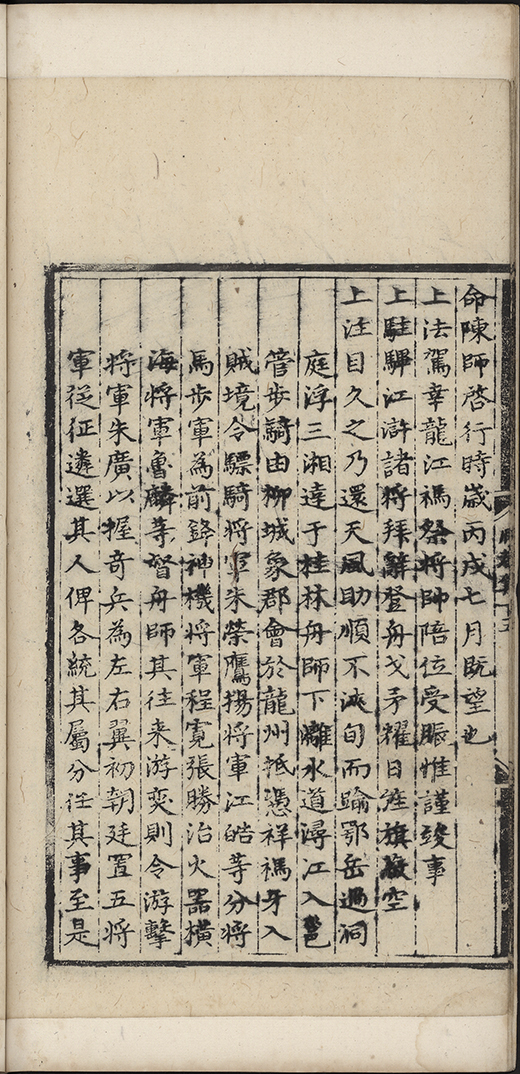 命陳師啓行時歲丙戌七月既望也
上法駕幸龍江禡祭將帥陪位受脤惟謹竣事
上駐驆江滸諸將拜辭登舟戈矛耀日旌旗蔽空
上注目久之乃還天風助順不浹旬而踰鄂岳過洞
庭浮三湘達于桂林舟師下灕水道潯江入邕
管步騎由柳城象郡會於龍州抵憑祥禡牙入
賊境令驃騎將軍朱榮鷹揚將軍江皓等分將
馬步軍為前鋒神機將軍程寬張勝治火器橫
海將軍魯麟等督舟師其往来游奕則令游擊
將軍朱廣以握奇兵為左右翼初朝廷置五將
軍從征遴選其人俾各統其屬分任其事至是